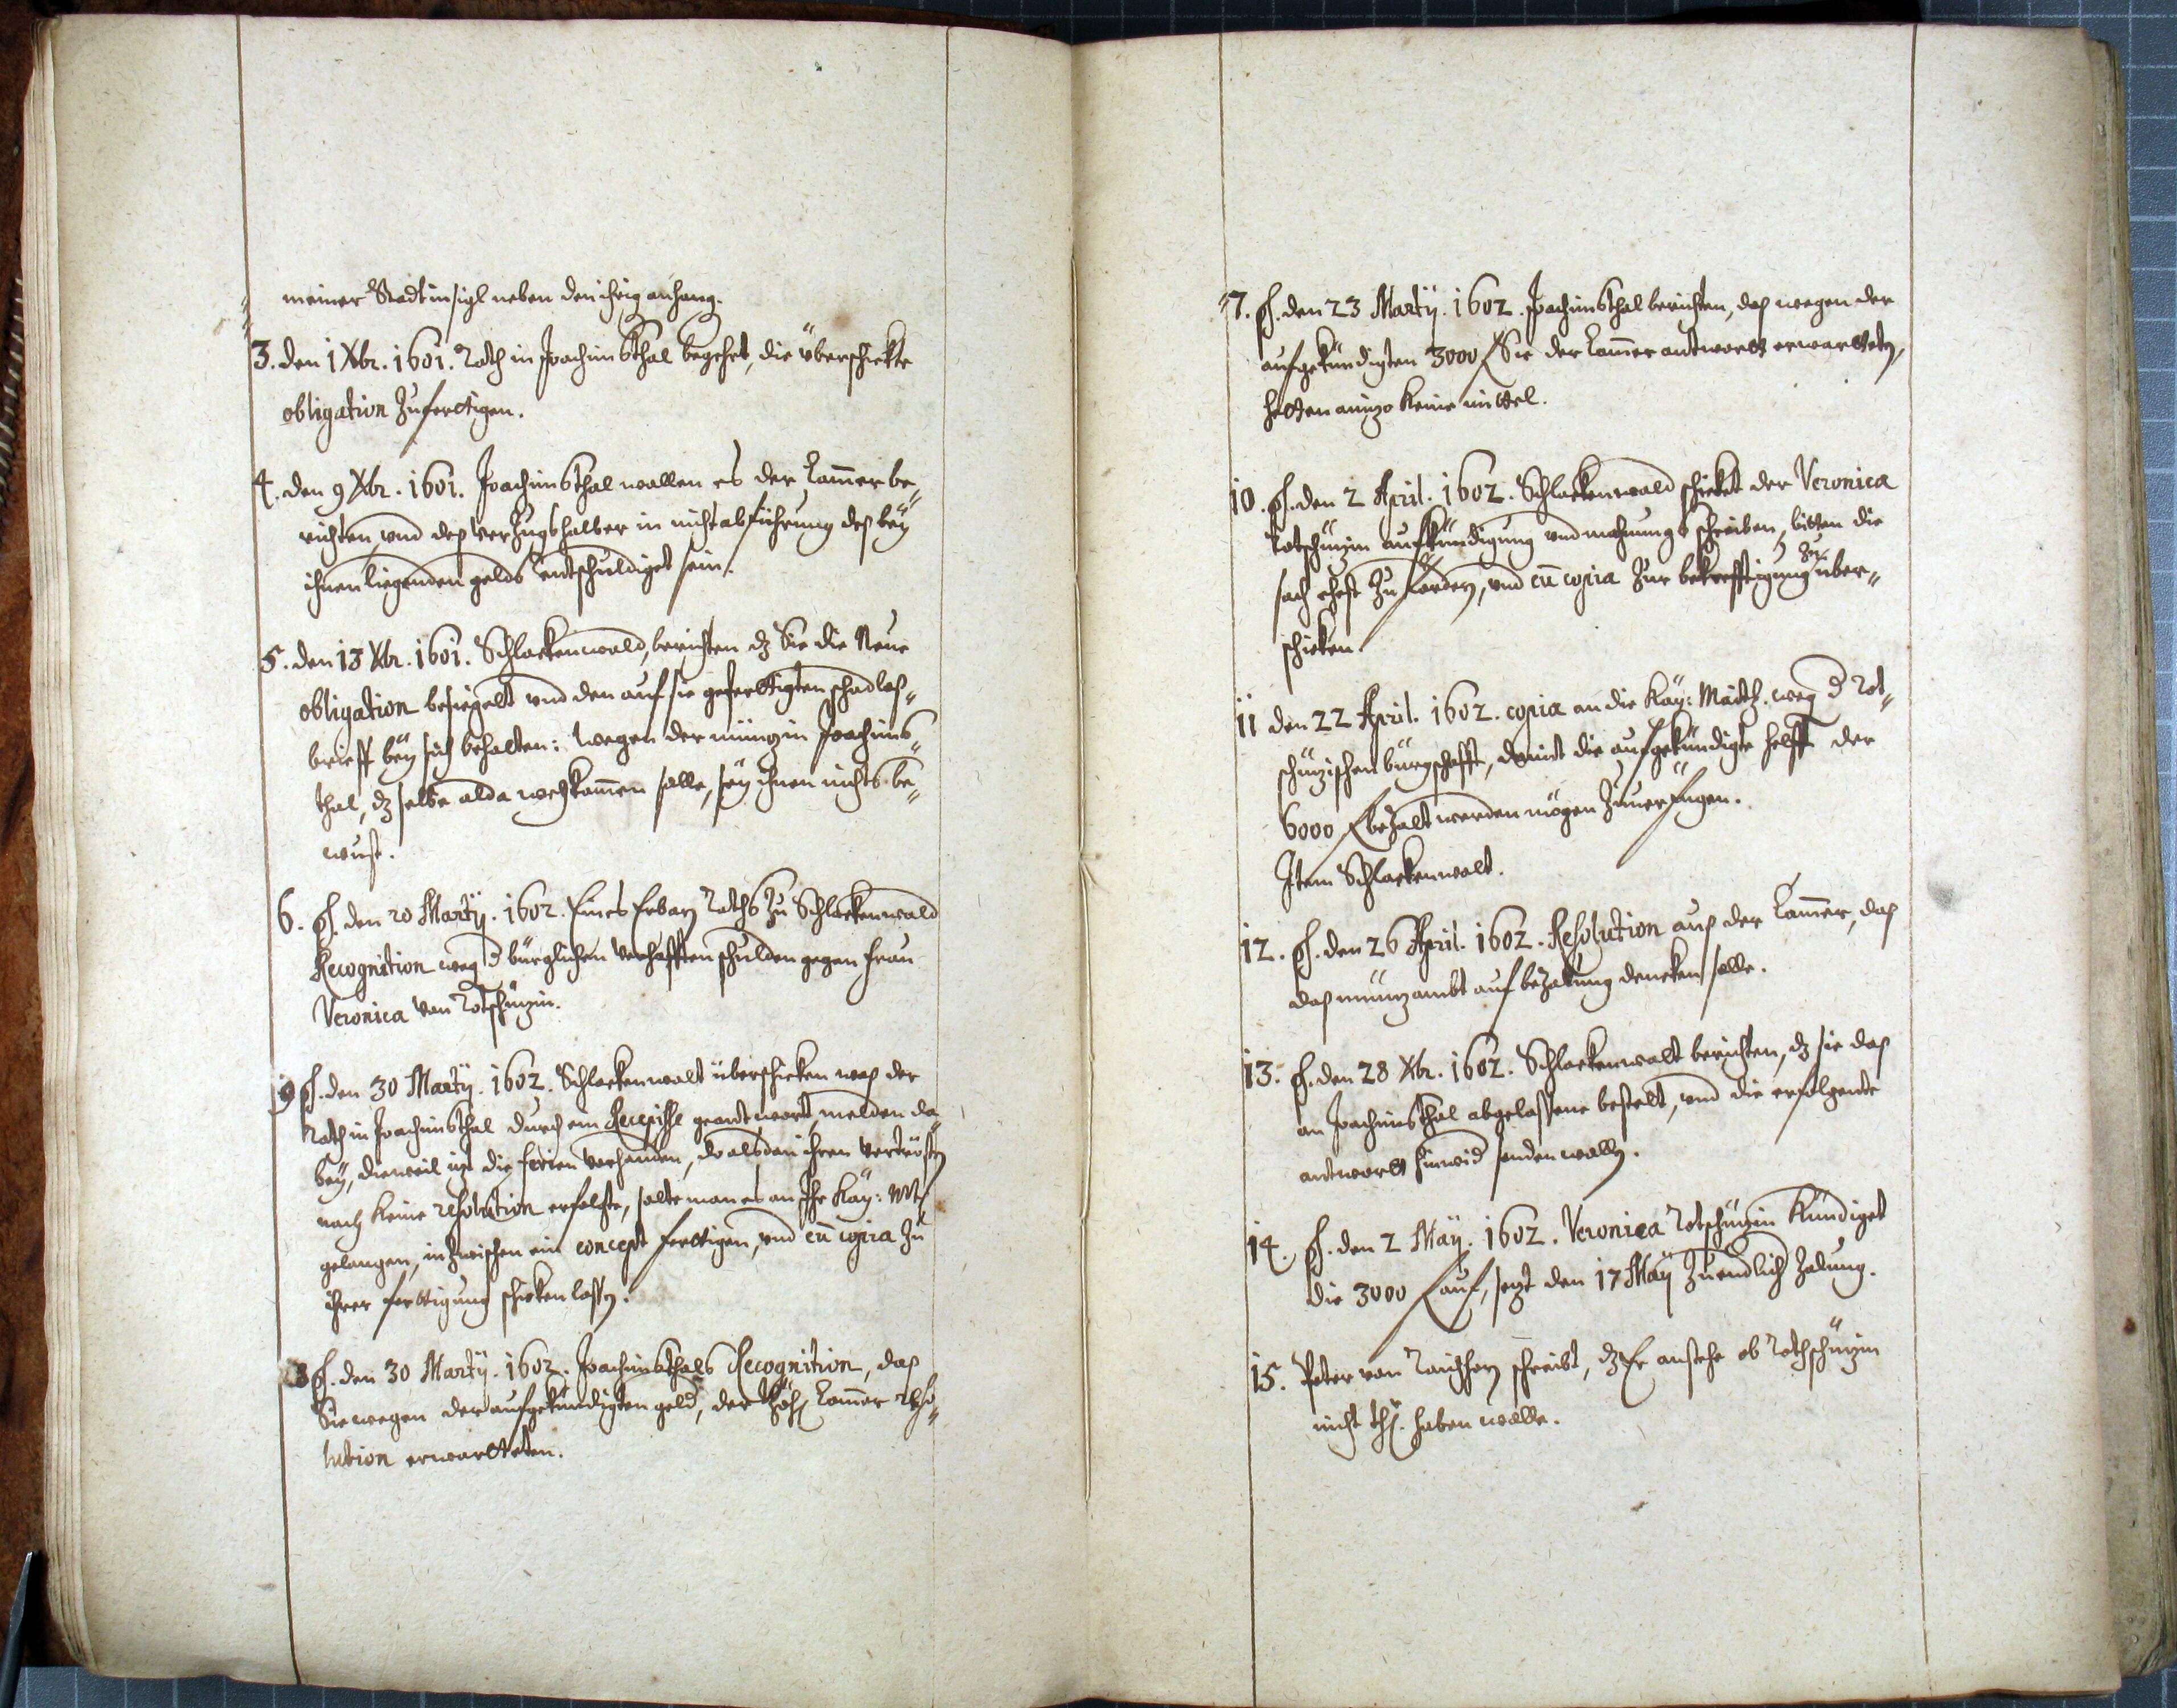 meiner Stadt insigl neben den ihrig anhang.
3. den 1 Xbr. 1601. Rath in Joachimsthal begehrt, die überschickte
obligation zufertigen.
4. den 9 Xbr. 1601. Joachimsthal wollen es der Cam̄er be„
richten, vnd deß Verzugs halber in nicht abführung deß bey
ihnen liegenden gelds entschuldiget sein.
5. den 13 Xbr. 1601. Schlackenwald, berichten dz Sie die Neue
obligation besiegelt vnd den auf sie gefertigten schadloß„
brieff bey sich behalten: wegen der müntz in Joachims„
thal, dz selbe alda wegkom̄en solle, sey ihnen nichts be„
wust.
6. ps. den 20 Martij. 1602. Eines Erbarn Raths zu Schlackenwald
Recognition weg d bürglichen verhafften schulden gegen frau
Veronica von Rotschützin.
9 ps. den 30 Martij. 1602. Schlackenwalt überschicken waß der
Rath in Joachimsthal durch ein Recepisse geantwort, melden da„
bey, dieweil itzt die ferien vorhanden, do alsdan ihren vertrösten
nach keine resolution erfolgte, solte man es an Ihr Kay: Mt
gelangen, inzwischen ein concept fertigen, vnd cū copia zu
ihrer fertigung schicken lassen.
8 ps. den 30 Martij. 1602. Joachimsthals Recognition, daß
Sie wegen der aufgekündigten geld, der Cam̄er reso„
lution erwartteten.
7. ps. den 23 Martij. 1602. Joachimsthal berichten, daß wegen der
aufgekündigten 3000 f Sie der Cam̄er antwortt erwartteten,
hetten anitzo keine mittel.
10. ps. den 2 April. 1602. Schlackenwald schickt der Veronica
Rotschützin aufkündigung vnd mahnungs schreiben, bitten die
sach ehest zu fördern, vnd cū copia zur bekrefftigung zu über„
schicken.
11 den 22 April. 1602. copia an die Kay: Maÿtt. weg d Rot„
schützischen bürgschafft, damit die aufgekündigte helfft der
6000 f bezalt werden mögen zuuerfügen.
Item Schlackenwalt.
12. ps. den 26 April. 1602. Resolution auß der Cam̄er, daß
daß müntzambt auf bezalung dencken solle.
13. ps. den 28 Xbr. 1602. Schlackenwalt berichten, dz sie daß
an Joachimsthal abgelassene bestelt, vnd die erfolgente
antwortt hinwid senden wolln.
14. ps. den 2 Maij. 1602. Veronica Rotschützin kündiget
die 3000 f auf, setzt den 17 Maij zu endlich zalung.
15. Peter von schreibt, dz Er anstehe ob Rothschützin
nicht thl. haben wolle.